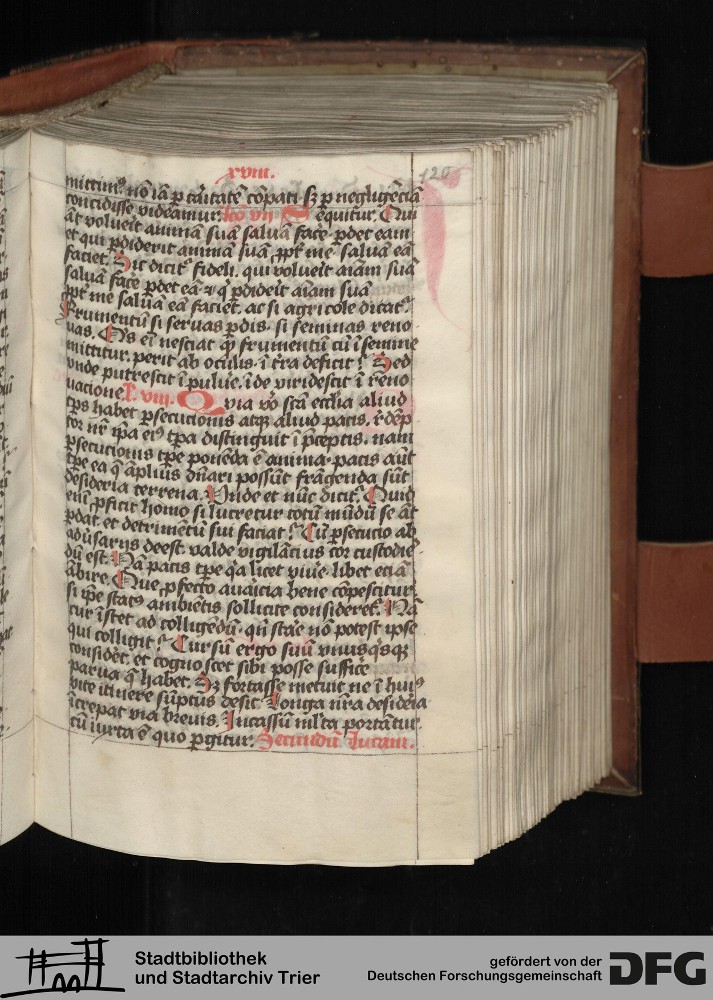 xviii.
120
mittim⁹. nō iā p caritatē cōpati· sʒ p negligēciā
concidisse videamur. lcō vii Sequitur. Qui
āt voluerit animā suā saluā face· pdet eam
et qui pdiderit animā suā ꝓpt̄ me· saluā eā
faciet. Sic dicit̄ fideli. qui voluerit aiam suā
saluā face pdet eā ⁊ q pdiderit aiam suā
ꝓpt̄ me saluā eā faciet. ac si agricole dicat̄.
Frumentū si seruas pdis· si seminas reno
uas. Quis eī nesciat qꝫ frumentū cū ī semine
mittitur. perit ab oculis· ī t̄ra deficit? Sed
vnde putrescit ī puluē. īde viridescit ī reno
uacione. L. viii. Quia vo scā ecclīa aliud
tp̄s habet psecucionis atqꝫ aliud pacis. redēp
tor nr̄ ipa ei⁹ tpa distinguit ī pceptis. nam
psecucionis tpe ponēda ē anima· pacis aūt
tpe ea q āplius dn̄ari possūt frāgenda sūt
desideria terrena. Vnde et nūc dicit̄. Quid
eni ꝓficit homo si lucretur totū mūdū se āt
pdat et detrimētū sui faciat? Cū psecucio ab
aduersarijs deest. valde vigilācius cor custodiē
dū est. Nā pacis tpe q̄a licet viue· libet eciā
ābire. Que ꝓfecto auaricia bene cōpescitur.
si ipe stat⁹ ambiētis sollicite consideret̄. Nā
cur īstet ad colligēdū. qn̄ stare nō potest ipse
qui colligit? Cursū ergo suū vnusq̄sqꝫ
considēt. et cognoscet sibi posse sufficē
parua q̄ habet. Sʒ fortasse metuit ne ī hui⁹
vite itinere sūptus desit. Longa nr̄a desideria
īcrepat via breuis. Incassū ml̄ta portātur.
cū iuxta ē quo pgitur. Secundū Lucam.
Stadtbibliothek
und Stadtarchiv Trier
gefördert von der
Deutschen Forschungsgemeinschaft
DFG